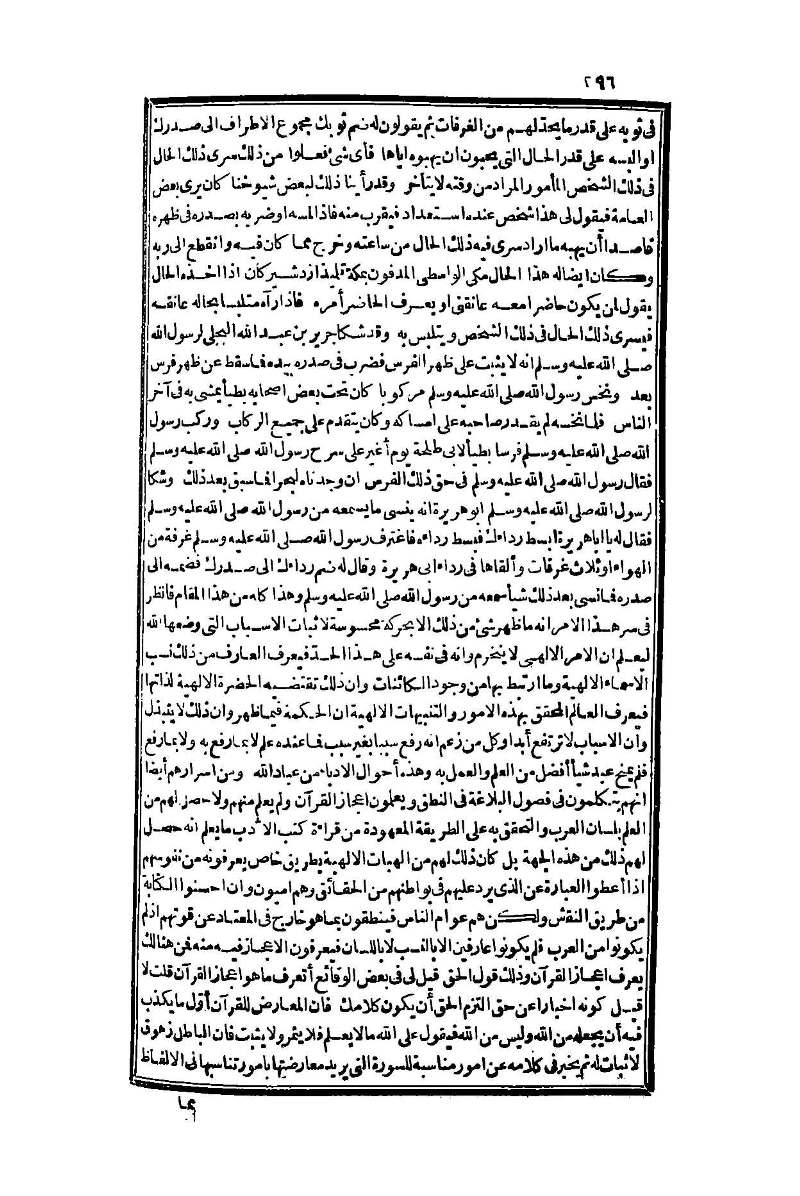 ٢٩٦
فى ثوبه على قدر ما يحد لهم من الغرفات ثم يقولون له ضم ثوبك مجموع الاطراف الى صدرك
او البسه على قدر الحال التى يحبون ان يهبوه اياها فأى شئ فعلوا من ذلك سرى ذلك الحال
فى ذلك الشخص المأمور المراد من وقته لا يتأخر وقد رأينا ذلك لبعض شيوخنا كان يرى بعض
العامة فيقول لى هذا شخص عنده استعداد فيقرب منه فاذا لمسه او ضربه بصدره فى ظهره
قاصدا أن يهبه ما اراد سرى فيه ذلك الحال من ساعته وخرج مما كان فيه وانقطع الى ربه
وكان ايضا له هذا الحال مكى الواسطى المدفون بمكة تلميذ ازدشير كان اذا اخذه الحال
يقول لمن يكون حاضرا معه عانقنى او يعرف الحاضر أمره فاذا رآه متلبسا بحاله عانقه
فيسرى ذلك الحال فى ذلك الشخص ويتلبس به وقد شكا جرير بن عبد الله البجلى لرسول الله
صلى الله عليه وسلم انه لا يثبت على ظهر الفرس فضرب فى صدره بيده فما سقط عن ظهر فرس
بعد ونخس رسول الله صلى الله عليه وسلم مركوبا كان تحت بعض اصحابه بطيأ يمشى به فى آخر
الناس فلما نخسه لم يقدر صاحبه على امساكه وكان يتقدم على جميع الركاب وركب رسول
الله صلى الله عليه وسلم فرسا بطيأ لابى طلحة يوم أغير على سرح رسول الله صلى الله عليه وسلم
فقال رسول الله صلى الله عليه وسلم فى حق ذلك الفرس ان وجدناه لبحرا فما سبق بعد ذلك وشكا
لرسول الله صلى الله عليه وسلم ابو هريرة انه ينسى ما يسمعه من رسول الله صلى الله عليه وسلم
فقال له يا ابا هريرة ابسط رداءك فبسط رداءه فاغترف رسول الله صلى الله عليه وسلم غرفة من
الهواء او ثلاث غرفات وألقاها فى رداء ابى هريرة وقال له ضم رداءك الى صدرك فضمه الى
صدره فما نسى بعد ذلك شيأ سمعه من رسول الله صلى الله عليه وسلم وهذا كله من هذا المقام فانظر
فى سر هذا الامر انه ما ظهر شئ من ذلك الا بحركة محسوسة لاثبات الاسباب التى وضعها الله
ليعلم ان الامر الالهى لا ينخرم وانه فى نفسه على هذا الحد فيعرف العارف من ذلك نسب
الاسماء الالهية وما ارتبط بها من وجود الكائنات وان ذلك تقتضيه الحضرة الالهية لذاتها
فيعرف العالم المحقق بهذه الامور والتنبيهات الالهية ان الحكمة فيما ظهر وان ذلك لا يتبدل
وان الاسباب لا ترتفع أبدا وكل من زعم انه رفع سببا بغير سبب فما عنده علم لا بما رفع به ولا بما رفع
فلم يمنح عبد شيأ أفضل من العلم والعمل به وهذه أحوال الادباء من عباد الله ومن اسرارهم أيضا
انهم يتكلمون فى فصول البلاغة فى النطق ويعلمون اعجاز القرآن ولم يعلم منهم ولا حصل لهم من
العلم بلسان العرب والتحقق به على الطريقة المعهودة من قراءة كتب الأدب ما يعلم انه حصل
لهم ذلك من هذه الجهة بل كان ذلك لهم من الهبات الالهية بطريق خاص يعرفونه من نفوسهم
اذا أعطوا العبارة عن الذى يرد عليهم فى بواطنهم من الحقائق وهم اميون وان احسنوا الكتابة
من طريق النقش ولكن هم عوام الناس فينطقون بما هو خارج فى المعتاد عن قوتهم اذ لم
يكونوا من العرب فلم يكونوا عارفين الا بالنسب لا باللسان فيعرفون الاعجاز فيه منه فن هنالك
يعرف اعجاز القرآن وذلك قول الحق قيل لى فى بعض الوقائع أتعرف ما هو اعجاز القرآن قلت لا
قيل كونه اخبارا عن حق التزم الحق أن يكون كلامك فان المعارض للقرآن أول ما يكذب
فيه أن يجعله من الله وليس من الله فيقول على الله ما لا يعلم فلا يثمر ولا يثبت فان الباطل زهوق
لا ثبات له ثم يخبر فى كلامه عن امور مناسبة للسورة التى يريد معارضتها بامور تناسبها فى الالفاظ
مما